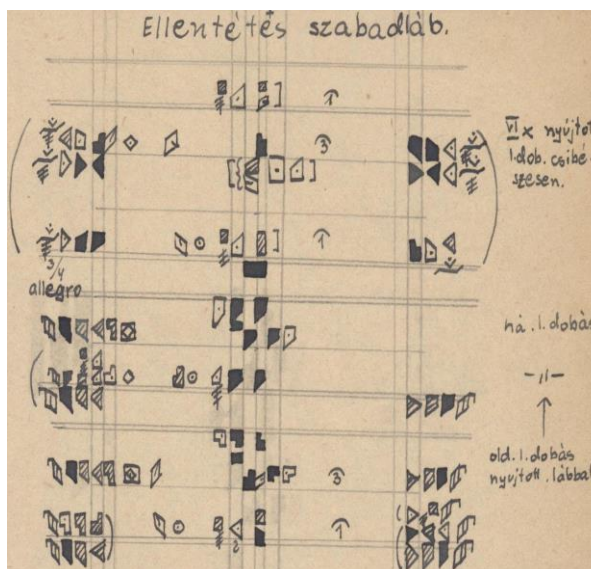 Ellentétes szabadláb.
VI x nyújtott
l.dob. csibé-
szesen.
3/4
allegro
há. l. dobás
-〃-
old. l. dobás
nyújtott. lábbal